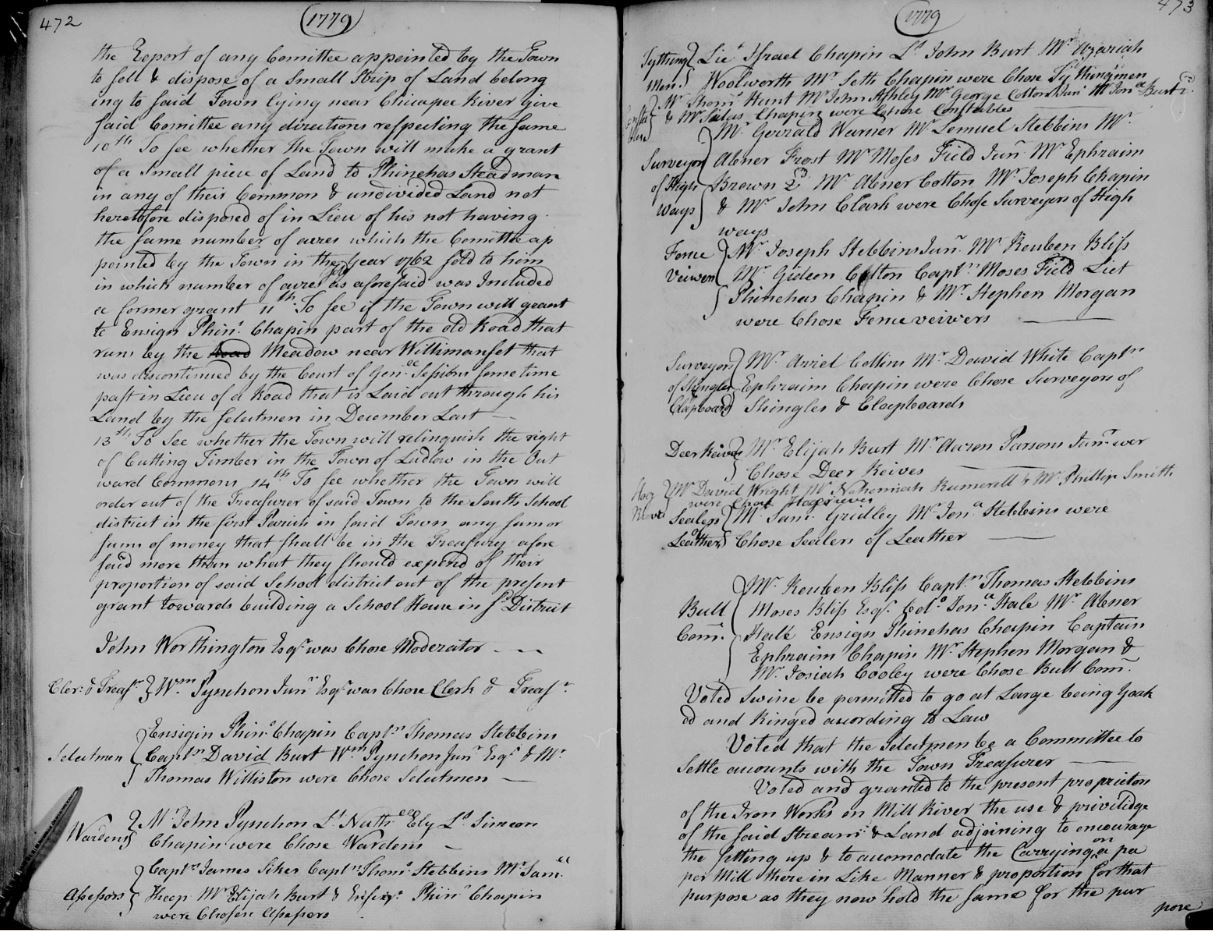 472
1779
the Report of any Comittee appointed by the Town
to sell & dispose of a Small Strip of Land belong
ing to said Town lying near Chicapee River give
said Comittee any directions respecting the same
10th To see whether the Town will make a grant
of a small piece of Land to Phinehas Steadman
in any of their Common & undivided Land not
heretofore disposed of in Lieu of his not having
the same number of acres which the Comittee ap
pointed by the Town in the Year 1762 sold to him
in which number of acres as aforesaid was Included
a former grant 11th To see if the Town will grant
to Ensign Phins. Chapin part of the old Road that
runs by the Meadow near Willimanset that
was discontinued by the Court of Genl. Session some time
past in Lieu of a Road that is Laid out through his
Land by the Selectmen in December Last —
13th To see whether the Town will relinquish the right
of Cutting Timber in the Town of Ludlow in the Out
ward Commons 14th To see whether the Town will
order out of the Treasurer of said Town to the South School
district in the first Parish in said Town any sum or
sums of money that shall be in the Treasury afore
said more than what they should expend of their
proportion of said School district out of the present
grant towards building a School House in sd. District
John Worthington Esqr was Chose Moderator — —
Cler: & Treasr. } Wm Pynchon Junr Esqr was Chose Clerk & Treasr.
Ensign Phins. Chapin Captn Thomas Stebbins
Selectmen { Captn David Burt Wm Pynchon Junr Esqr & Mr
Thomas Williston were Chose Selectmen —
Mr John Pynchon Lt Nathl Ely Lt Simeon
Wardens } Chapin were Chose Wardens —
Captn James Sikes Captn Thoms Stebbins Mr Saml
Assessors { Keep Mr Elijah Burt & Ensign Phins Chapin
were Chosen Assessors
473
1779
Tything Men } Lie't Israel Chapin Lt John Burt Mr Azariah
Woolworth Mr Seth Chapin were Chose Tythingmen
Mr Thoms Hunt Mr John Ashley Mr George Colton Junr Mr Jona Burt
& Mr Silas Chapin were Chose Constables
Mr Gerrald Warner Mr Lemuel Stebbins Mr
Surveyors Abner Frost Mr Moses Field Junr Mr Ephraim
of High Brown 2d Mr Abner Cotton Mr Joseph Chapin
ways & Mr John Clark were Chose Surveyors of High
ways
Fence } Mr Joseph Stebbins Junr Mr Reuben Bliss
Veiwers Mr Gideon Cotton Captn Moses Field Liet
Phinehas Chapin & Mr Stephen Morgan
were Chose Fence veiwers —
Surveyors } Mr Arriel Collins Mr David White Captn
of Shingles Ephraim Chapin were Chose Surveyors of
Clapboard Shingles & Clapboards
Deer Reives } Mr Elijah Burt Mr Aaron Parsons Junr wer
Chose Deer Reives —
Hog Reives } Mr David Wright Mr Nehemiah Rumerell & Mr Phillip Smith
were Chose Hogreives
Sealers } Mr Saml Gridley Mr Jona Stebbins were
Leather Chose Sealers of Leather —
Mr Reuben Bliss Captn Thomas Stebbins
Butt Moses Bliss Esqr Colo Jona Hale Mr Abner
Com. Hale Ensign Phinehas Chapin Captain
Ephraim Chapin Mr Stephen Morgan &
Mr Josiah Cooley were Chose Butt Com.
Voted Swine be permitted to go at Large being Yoak
ed and Ringed acording to Law
Voted that the Selectmen be a Committee to
Settle accounts with the Town Treasurer —
Voted and granted to the present proprietors
of the Iron Works on Mill River the use & priviledge
of the said Stream & Land adjoining to encourage
the Setting up & to acomodate the Carrying on a pa
per Mill there in Like Manner & proportion for that
purpose as they now hold the same for the pur
pose